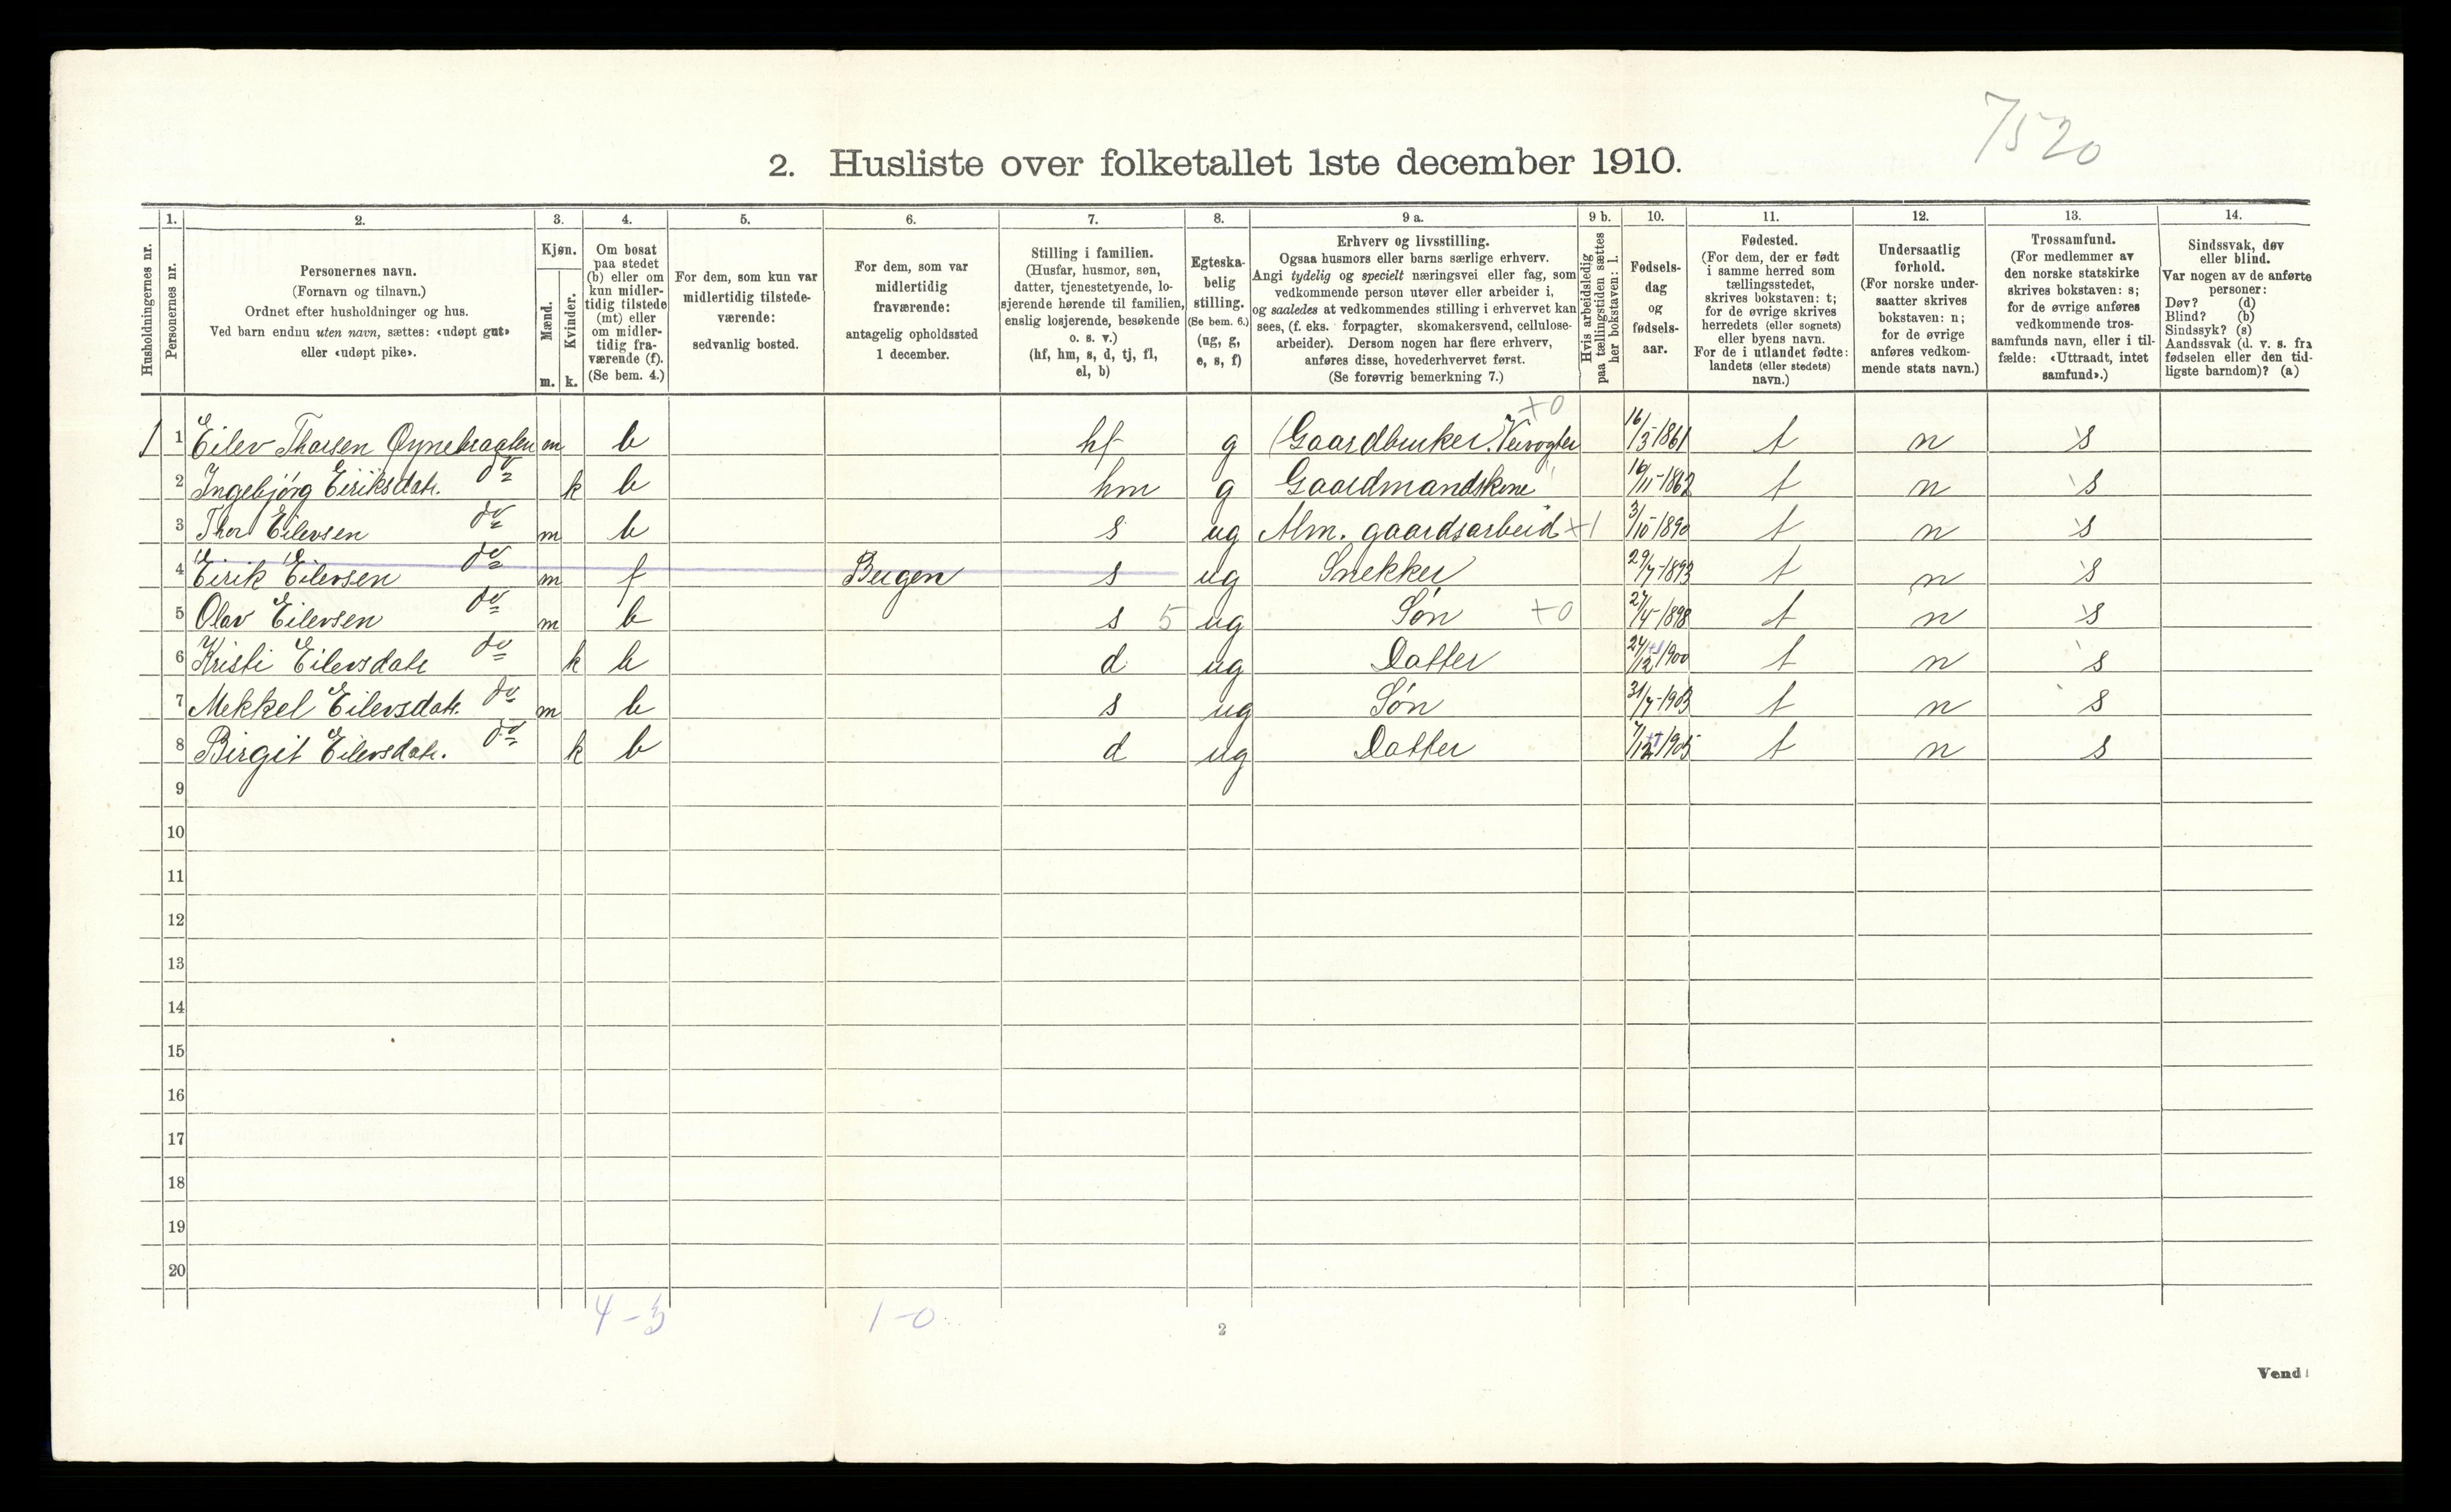 7520
2. Husliste over folketallet 1ste december 1910.
1. 2. 3. 4. 5. 6. 7. 8. 9 a. 9 b. 10. 11. 12. 13. 14.
Husholdningernes nr.
Personernes nr.
Personernes navn.
(Fornavn og tilnavn.)
Ordnet efter husholdninger og hus.
Ved barn endnu uten navn, sættes: «udøpt gut»
eller «udøpt pike».
Kjøn.
Mænd.
Kvinder.
m. k.
Om bosat
paa stedet
(b) eller om
kun midler-
tidig tilstede
(mt) eller
om midler-
tidig fra-
værende (f).
(Se bem. 4.)
For dem, som kun var
midlertidig tilstede-
værende:
sedvanlig bosted.
For dem, som var
midlertidig
fraværende:
antagelig opholdssted
1 december.
Stilling i familien.
(Husfar, husmor, søn,
datter, tjenestetyende, lo-
sjerende hørende til familien,
enslig losjerende, besøkende
o. s. v.)
(hf, hm, s, d, tj, fl,
el, b)
Egteska-
belig
stilling.
(Se bem. 6.)
(ug, g,
e, s, f)
Erhverv og livsstilling.
Ogsaa husmors eller barns særlige erhverv.
Angi tydelig og specielt næringsvei eller fag, som
vedkommende person utøver eller arbeider i,
og saaledes at vedkommendes stilling i erhvervet kan
sees, (f. eks. forpagter, skomakersvend, cellulose-
arbeider). Dersom nogen har flere erhverv,
anføres disse, hovederhvervet først.
(Se forøvrig bemerkning 7.)
Hvis arbeidsledig
paa tællingstiden sættes
her bokstaven: l.
Fødsels-
dag
og
fødsels-
aar.
Fødested.
(For dem, der er født
i samme herred som
tællingsstedet,
skrives bokstaven: t;
for de øvrige skrives
herredets (eller sognets)
eller byens navn.
For de i utlandet fødte:
landets (eller stedets)
navn.)
Undersaatlig
forhold.
(For norske under-
saatter skrives
bokstaven: n;
for de øvrige
anføres vedkom-
mende stats navn.)
Trossamfund.
(For medlemmer av
den norske statskirke
skrives bokstaven: s;
for de øvrige anføres
vedkommende tros-
samfunds navn, eller i til-
fælde: «Uttraadt, intet
samfund».)
Sindssvak, døv
eller blind.
Var nogen av de anførte
personer:
Døv? (d)
Blind? (b)
Sindssyk? (s)
Aandssvak (d. v. s. fra
fødselen eller den tid-
ligste barndom)? (a)
+0
1 1 Eilev Thorsen Øynebraaten m b hf g (Gaardbruker). Veivogter 16/3-1861 t n s
2 Ingebjörg Eiriksdatr. do k b hm g Gaardmandskone 16/11-1862 t n s
3 Thor Eilevsen do m b s ug Alm. gaardsarbeid +1 3/10-1890 t n s
4 Eirik Eilevsen do m f Bergen s ug Snekker 29/7-1893 t n s
5 Olav Eilevsen do m b s 5 ug Søn +0 27/4-1898 t n s
6 Kristi Eilevsdatr do k b d ug Datter 24/12 1900 t n s
7 Mekkel Eilevsdatr. do m b s ug Søn 31/7-1903 t n s
8 Birgit Eilevsdatr. do k b d ug Datter 7/12 1905 t n s
9
10
11
12
13
14
15
16
17
18
19
20
4-3 1-0
2
Vend